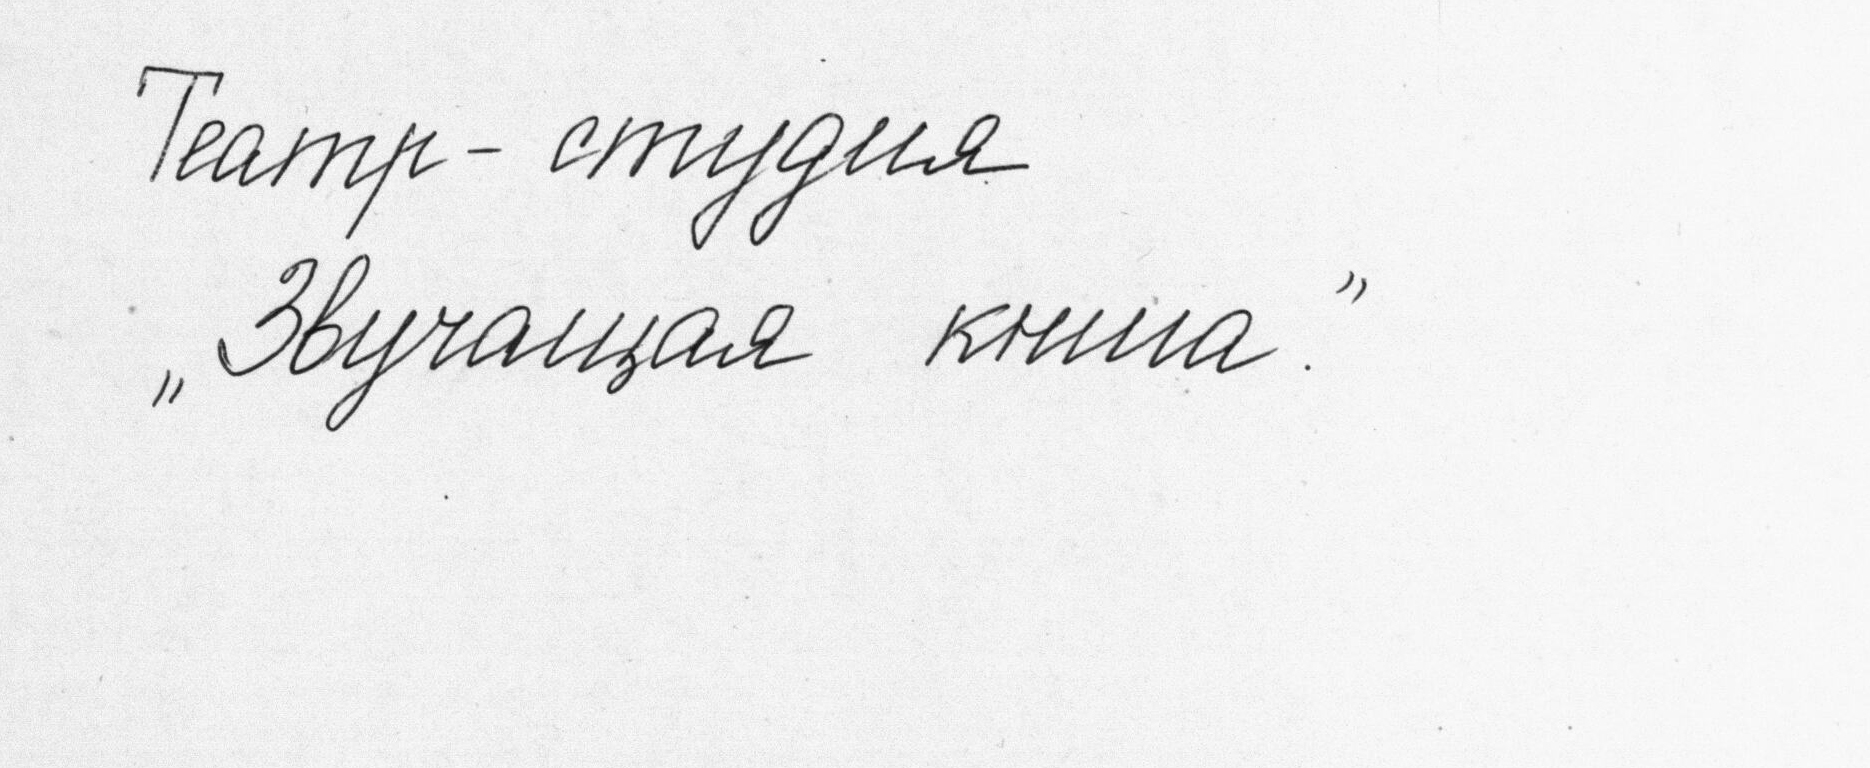 Театр - студия
„Звучащая книга."